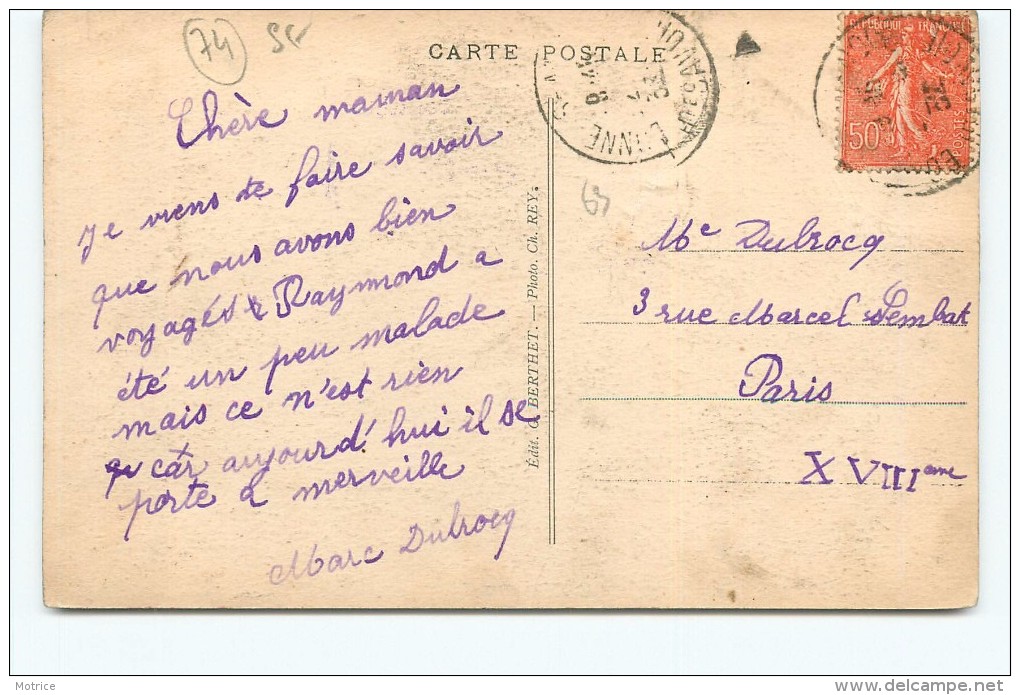 74
CARTE POSTALE
REPUBLIQUE FRANÇAISE
50
Chère maman
je viens te faire savoir
que nous avons bien
voyagés & Raymond a
été un peu malade
mais ce n'est rien
car aujourd'hui il se
porte à merveille
Marc Dubrocq
Édit. G. BERTHET. — Photo. Ch. REY.
Me Dubrocq
3 rue Marcel Sembat
Paris
XVIIIeme
Motrice
http://www.delcampe.net